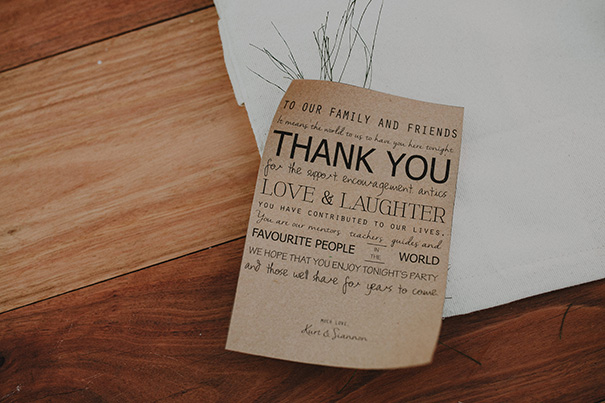 TO OUR FAMILY AND FRIENDS
It means the world to us to have you here tonight
THANK YOU
for the support encouragement antics
LOVE & LAUGHTER
YOU HAVE CONTRIBUTED TO OUR LIVES.
You are our mentors teachers guides and
FAVOURITE PEOPLE IN THE WORLD
WE HOPE THAT YOU ENJOY TONIGHT'S PARTY
and those we'll share for years to come
MUCH LOVE,
Kurt & Shannon